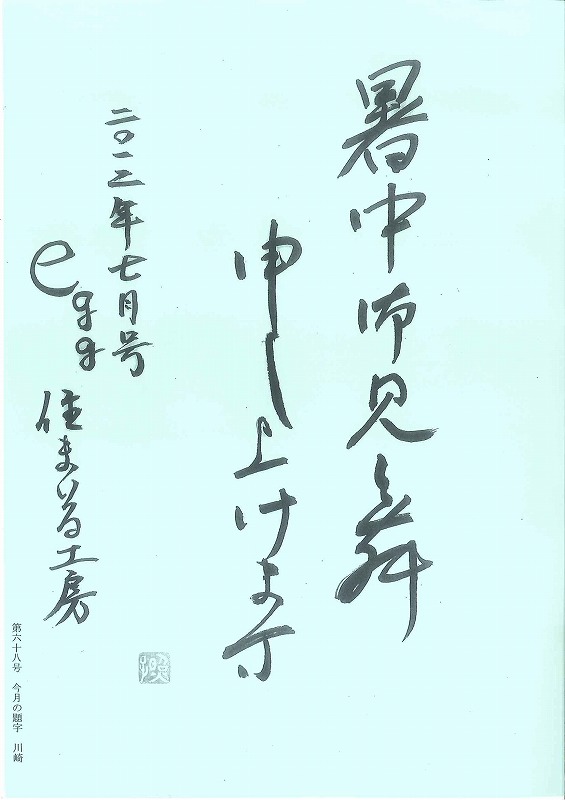 暑中御見舞
申し上げます
二〇一三年七月号
egg
住まいる工房
第六十八号　今月の題字　川崎